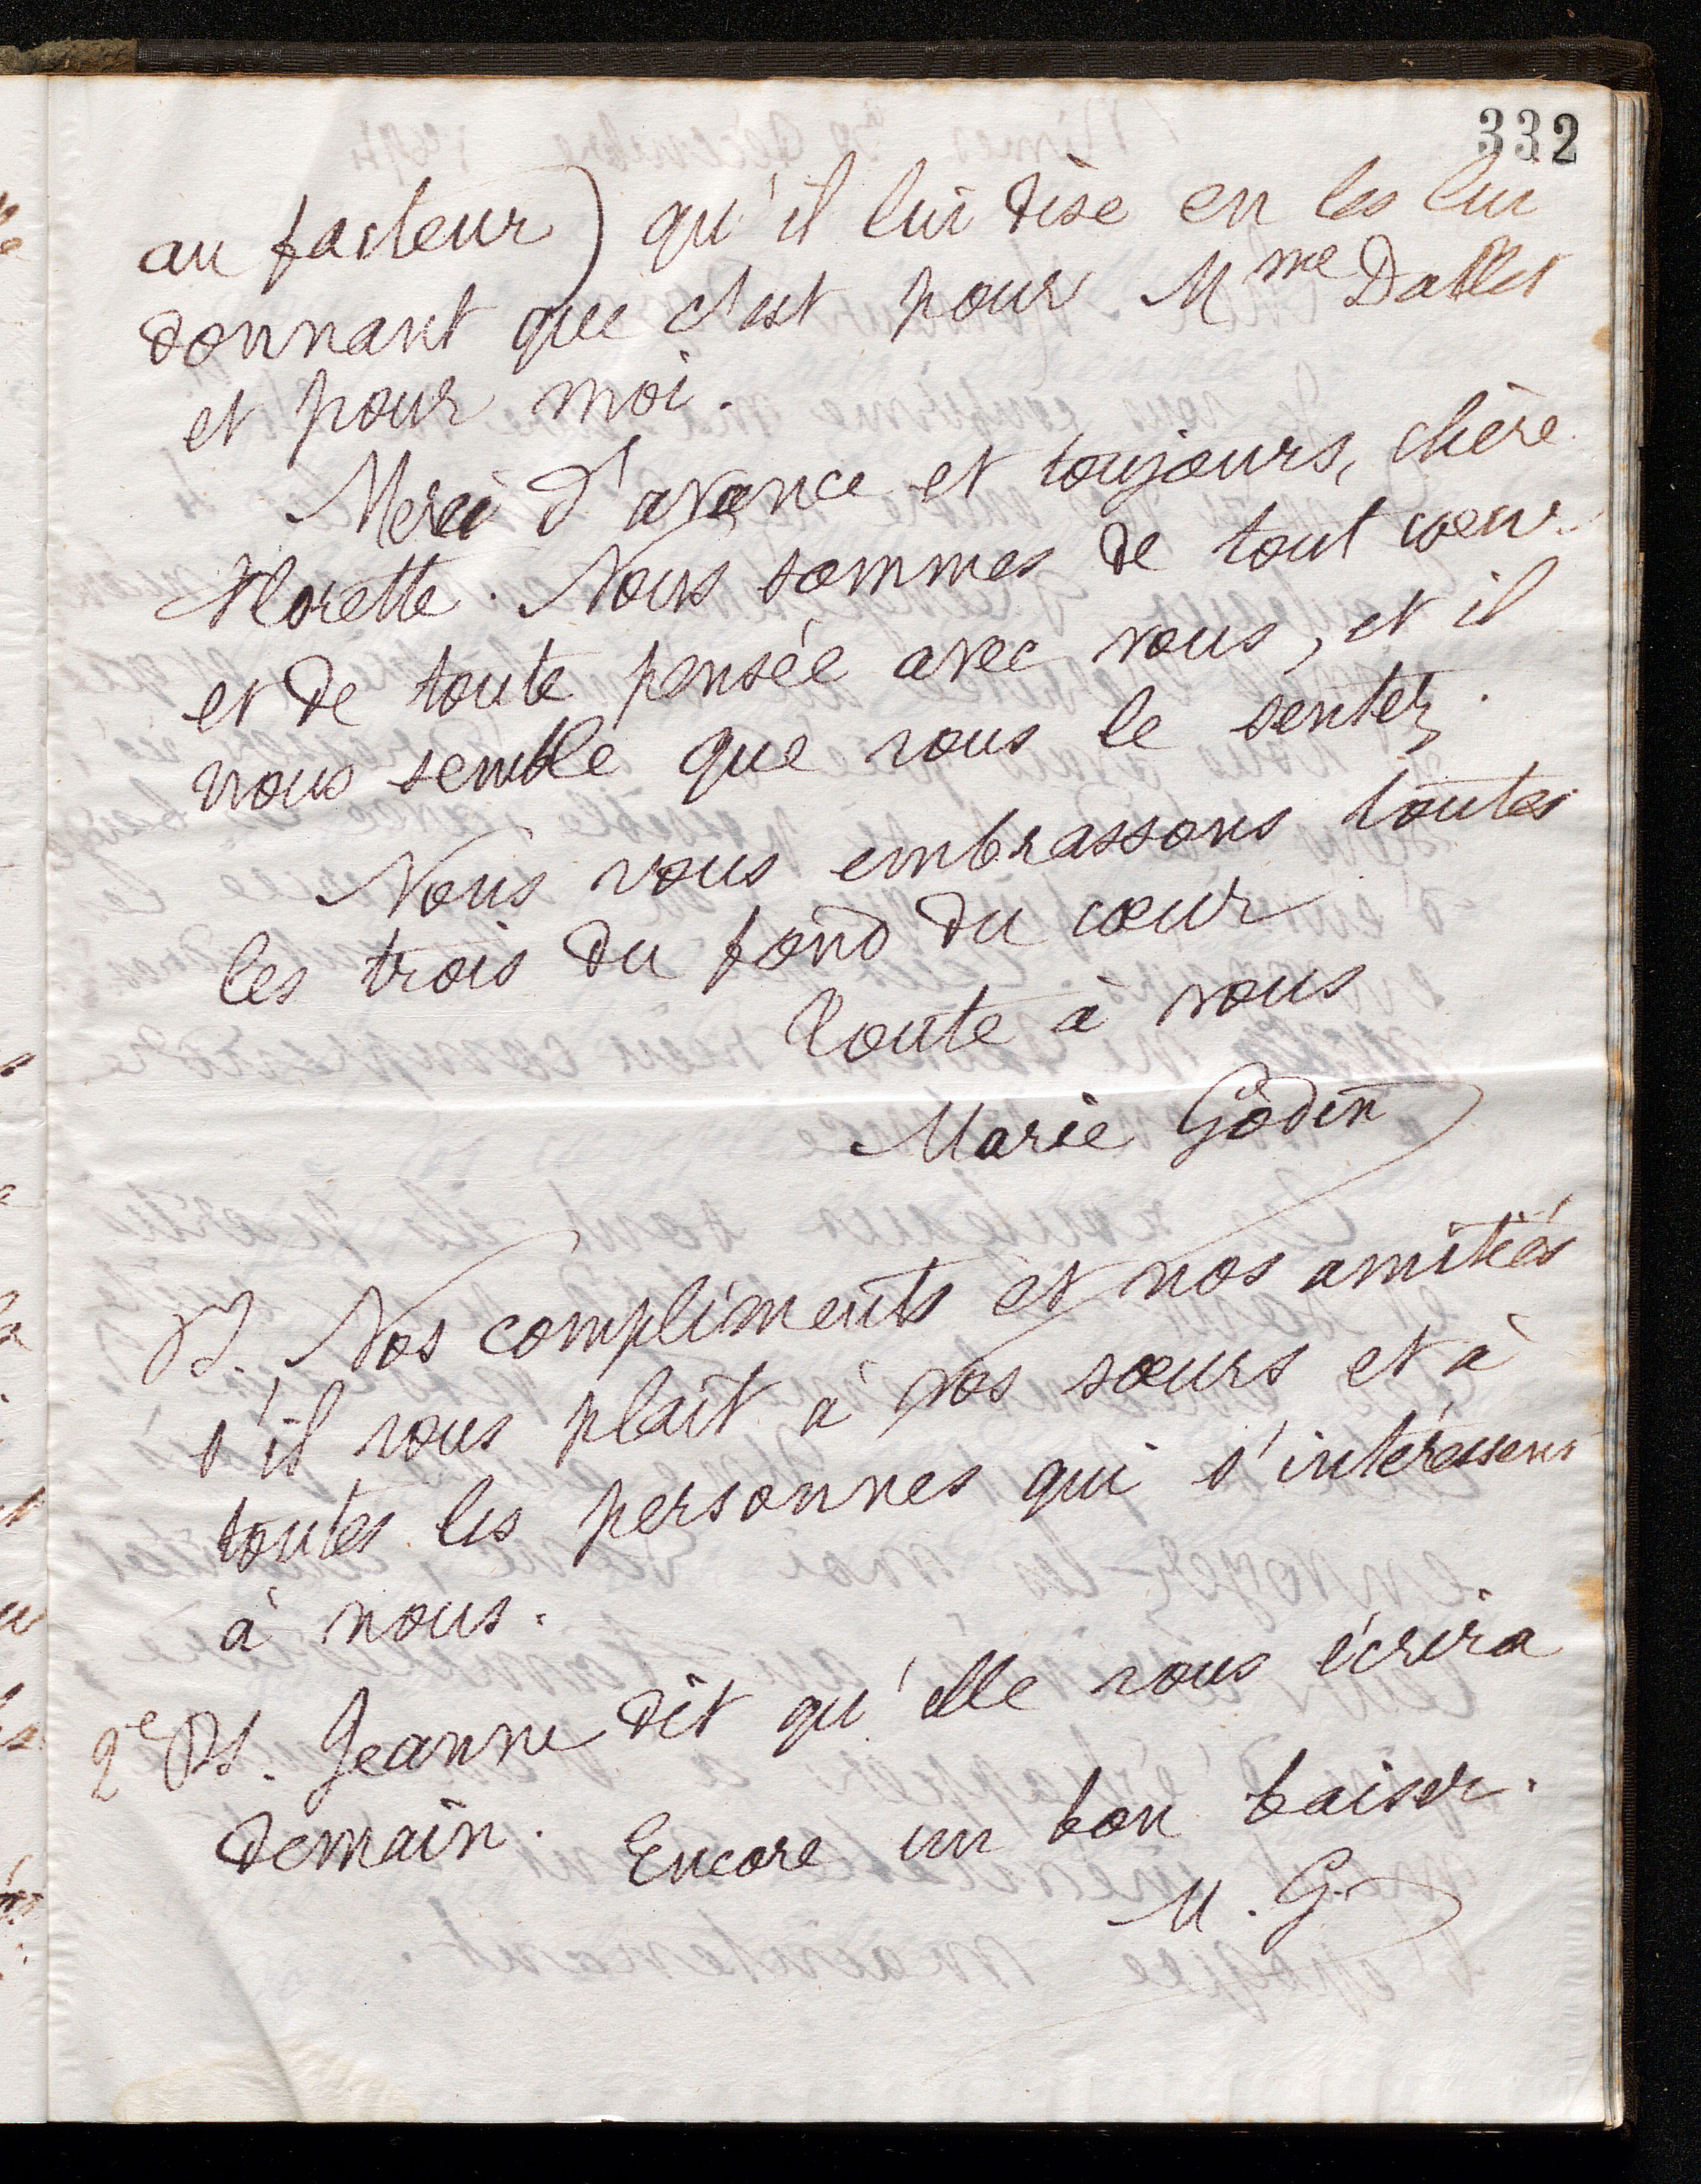 332
au facteur) qu'il lui dise en les lui
donnant que c'est pour Mme Dallet
et pour moi.
Merci d'avance et toujours, chère
Florette. Nous sommes de tout cœur
et de toute pensée avec vous, et il
nous semble que vous le sentez.
Nous vous embrassons toutes
les trois du fond du cœur
Toute à vous
Marie Godin
PS. Nos compliments et nos amitiés
s'il vous plaît à vos sœurs et à
toutes les personnes qui s'intéressent
à nous.
2e PS. Jeanne dit qu'elle vous écrira
demain. Encore un bon baiser.
M. G.